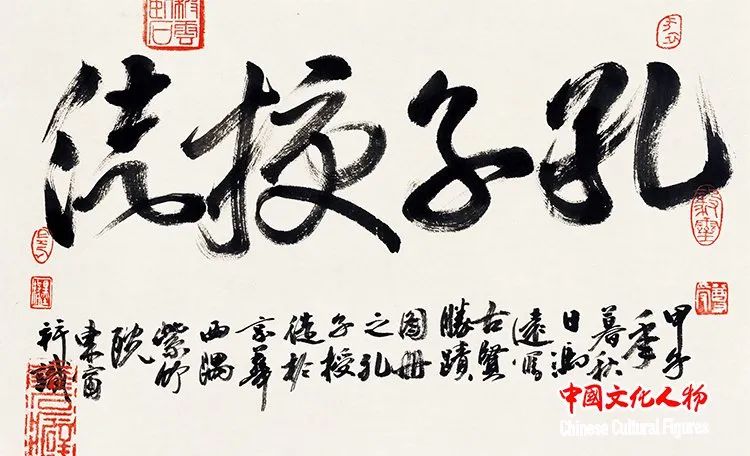 孔子授徒
甲午
季
暮秋
日馮
遠寫
古賢
勝蹟
圖冊
之孔
子授
徒於
京華
西隅
紫竹
院
東窗
識
中國文化人物
Chinese Cultural Figures